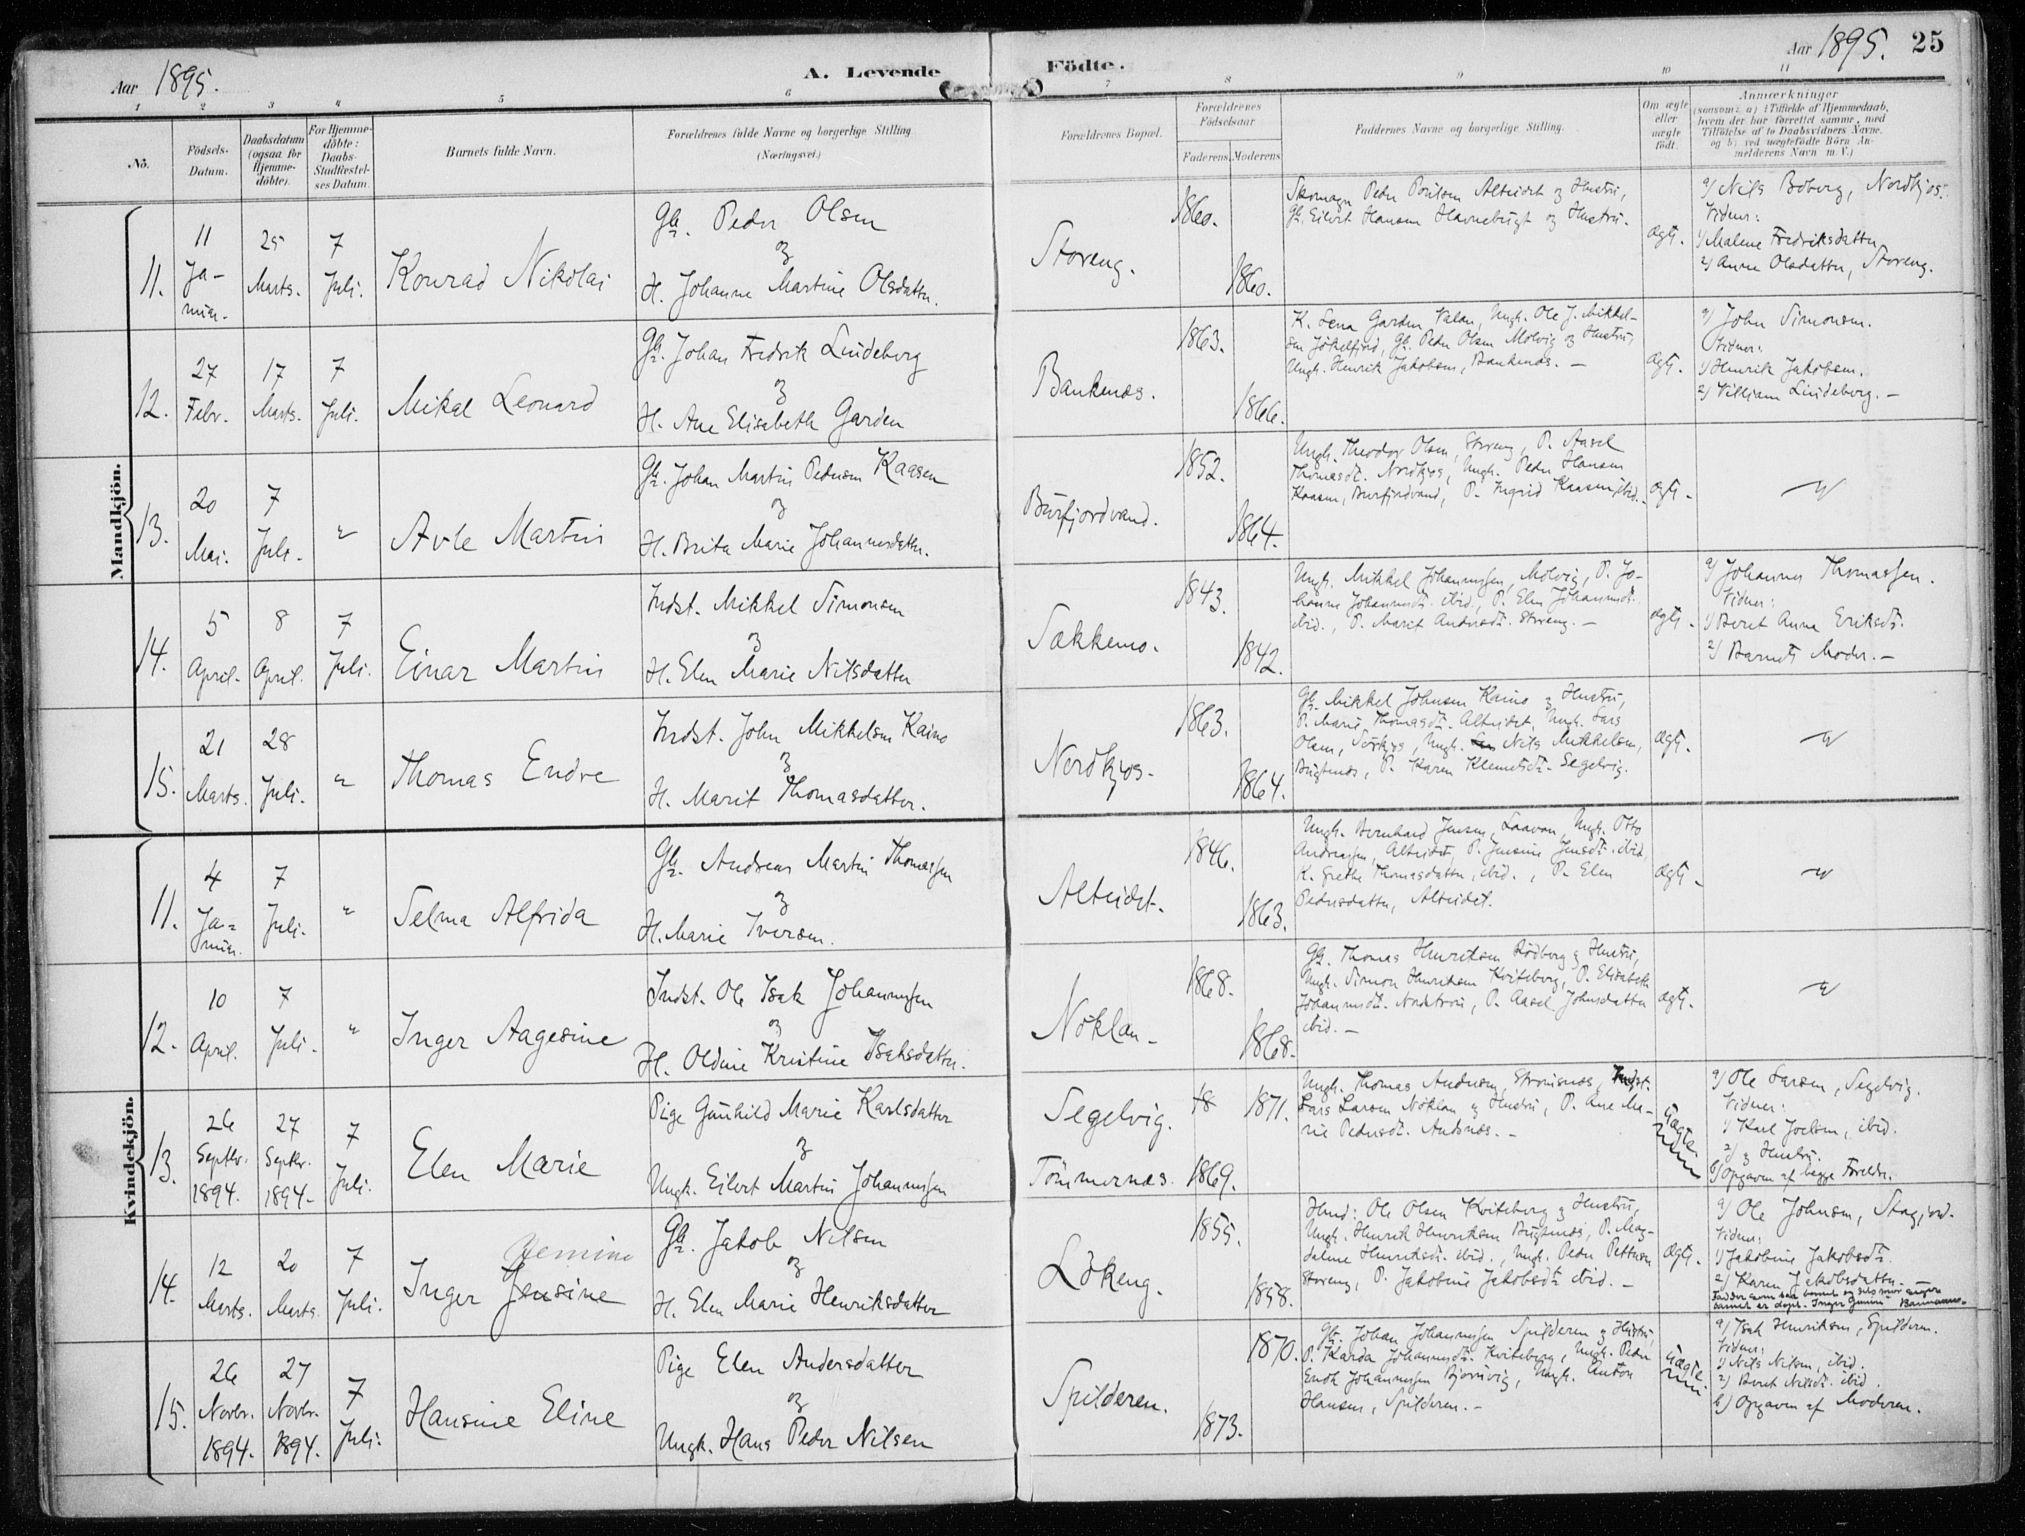 Aar 1895.
A. Levende
Födte.
Aar 1895. 25
1 2 3 4 5 6 7 8 9 10 11
No.
Födsels-
Datum.
Daabsdatum
(ogsaa for
Hjemme-
döbte).
For Hjemme-
döbte:
Daabs-
Stadfæstel-
ses Datum.
Barnets fulde Navn.
Forældrenes fulde Navne og borgerlige Stilling
(Næringsvei.)
Forældrenes Bopæl.
Forældrenes
Födselsaar
Faderens Moderens
Faddernes Navne og borgerlige Stilling.
Om ægte
eller
uægte
födt.
Anmærkninger
(saasom: a) i Tilfælde af Hjemmedaab,
hvem der har forrettet samme, med
Tilföielse af to Daabsvidners Navne.
og b) ved uægtefödte Börn An-
melderens Navn m. V.)
Mandkjön.
11.
11
Ja-
nuar.
25
Marts.
7
Juli.
Konrad Nikolai
Gbr. Peder Olsen
og
H. Johanne Martine Olsdatter.
Storeng.
1860.
1860.
Skomager Peder Poulsen Alteidet og Hustru,
Gbr. Eilert Hansen Havnebugt og Hustru.
ægte.
a) Nils Boberg, Nordkjos.
Vidner:
1) Malene Fredriksdatter
2) Anne Olsdatter, Storeng.
12.
27
Febr.
17
Marts.
7
Juli.
Mikal Leonard
Gbr. Johan Fredrik Lindeberg
og
H. Ane Elisabeth Garden
Bankenæs.
1863.
1866.
K. Lena Garden Valan, Ungk. Ole J. Mikkel-
sen Jökelfjord, Gbr. Peder Olsen Molvig og Hustru,
Ungk. Henrik Jakobsen, Bankenæs. —
ægte.
a) John Simonsen.
Vidner:
1) Henrik Jakobsen.
2) Villiam Lindeberg. —
13.
20
Mai.
7
Juli.
"
Avle Martin
Gbr. Johan Martin Pedersen Kaasen
og
H. Brita Marie Johannesdatter.
Burfjordvand.
1852.
1864.
Ungk. Theodor Olsen, Storeng, P. Aasel
Thomasdt. Nordkjos, Ungk. Peder Hansen
Kaasen, Burfjordvand, P. Ingrid Kaasen, ibid. -
ægte.
"
14.
5
April.
8
April.
7
Juli.
Einar Martin
Indst. Mikkel Simonsen
og
H. Elen Marie Nilsdatter
Sækkemo.
1843.
1842.
Ungk. Mikkel Johannessen, Molvig, P. Jo-
hanne Johannesdt. ibid., P. Elen Johannesdt.
ibid., P. Marit Andersdt. Storeng. —
ægte.
a) Johannes Thomassen.
Vidner:
1) Beret Anna Eriksdt.
2) Barnets Moder. —
15.
21
Marts.
28
Juli.
"
Thomas Endre
Indst. John Mikkelsen Kaino
og
H. Marit Thomasdatter.
Nordkjos.
1863.
1864.
Gbr. Mikkel Johnsen Kaino og Hustru,
P. Marie Thomasdt. Alteidet, Ungk. Lars
Olsen, Sörkjos, Ungk. Nils Mikkelsen,
Bugtnæs, P. Karen Klemetsdt. Segelvig.
ægte.
"
Kvindekjön.
11.
4
Ja-
nuar.
7
Juli.
"
Selma Alfrida
Gbr. Andreas Martin Thomassen
og
H. Marie Iversen.
Alteidet.
1846.
1863.
Ungk. Bernhard Jensen, Laavan, Ungk. Otto
Andreassen, Alteidet, P. Jensine Jensdt. ibid,
K. Grethe Thomasdatter, ibid., P. Elen
Pedersdatter, Alteidet.
ægte.
"
12.
10
April.
7
Juli.
"
Inger Aagesine
Indst. Ole Isak Johannessen
og
H. Oldine Kristine Isaksdatter.
Nöklan.
1868.
1868.
Gbr. Thomas Henriksen Rödberg og Hustru,
Ungk. Simon Henriksen Kviteberg, P. Elisabeth
Johannesdt. P. Aasel Johnsdatter
ibid. —
ægte.
"
13.
26
Septbr.
1894.
27
Septbr.
1894.
7
Juli.
Elen Marie
Pige Gunhild Marie Karlsdatter
og
Ungk. Eilert Martin Johannessen
Segelvig.
Tömmernæs.
18
1869.
1871.
Ungk. Thomas Andersen, Strömsnæs, Indst.
Lars Larsen Nöklan og Hustru, P. Ane Ma-
rie Pedersdt. Andsnæs. —
Uægte.
a) Ole Larsen, Segelvig.
Vidner:
1) Karl Joelsen, ibid.
2) og Hustru.
b) Opgaven af begge Foreldre.
14.
12
Marts.
20
Marts.
7
Juli.
Jemine
Inger Jensine
Gbr. Jakob Nilsen
og
H. Elen Marie Henriksdatter
Lökeng.
1855.
1858.
Husd: Ole Olsen Kviteberg og Hustru,
Ungk. Henrik Henriksen Bugtnæs, P. Mag-
dalene Henriksdt. ibid., Ungk. Peder Pettersen
Storeng, P. Jakobine Jakobsdt. ibid. —
ægte.
a) Ole Johnsen,
Vidner:
1) Jakobine Jakobsdt.
2) Karen Jakobsdatter.
15.
26
Novbr.
1894.
27
Novbr.
1894.
7
Juli.
Hansine Eline
Pige Elen Andersdatter
og
Ungk. Hans Peder Nilsen
Spilderen.
1873.
1870.
Gbr. Johan Johannessen Spilderen og Hustru,
P. Karda Johannesdt. Kviteberg, Ungk. Peder
Enok Johannessen Bjornvig, Ungk. Anton
Hansen, Spilderen. —
Uægte.
a) Isak Henriksen, Spilderen.
Vidner:
1) Nils Nilsen, ibid.
2) Beret Nilsdt. ibid.
b) Opgaven af Moderen.